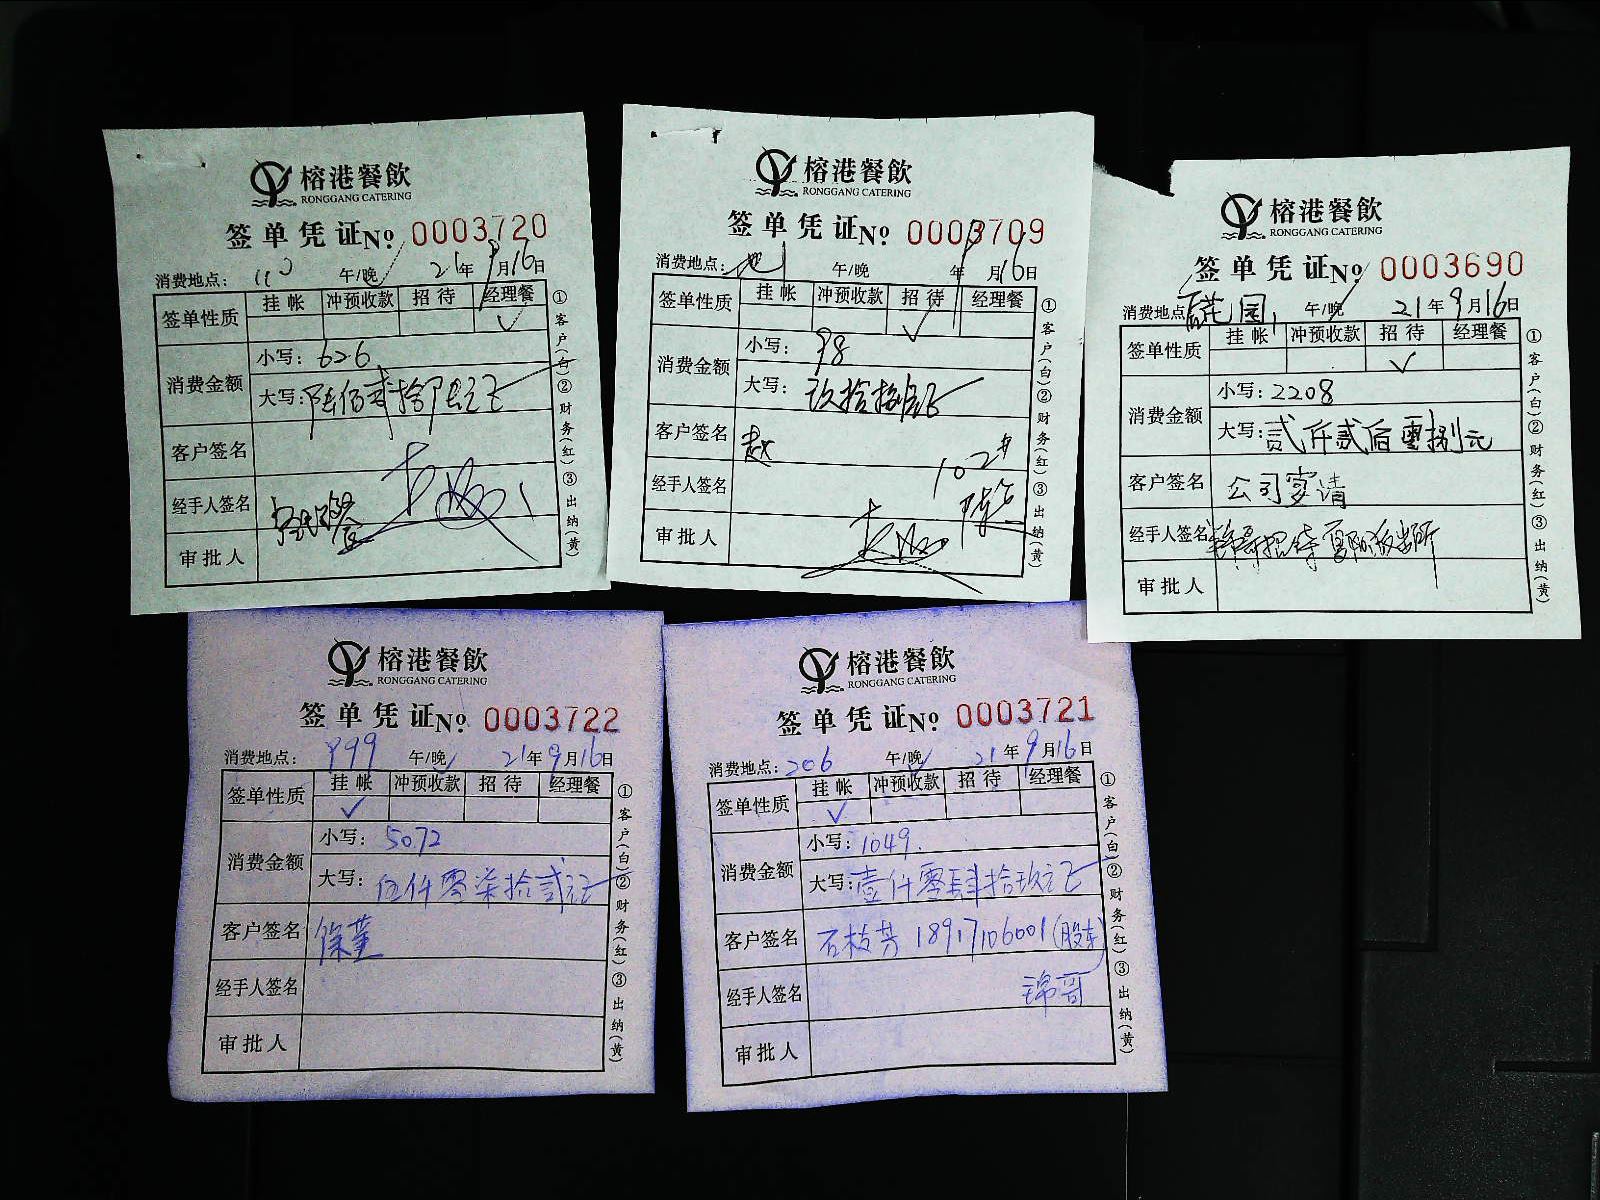 榕港餐飲
RONGGANG CATERING
签单凭证 No 0003720
消费地点: 110 午/晚 21年9月16日
签单性质 挂帐 冲预收款 招待 经理餐
✓
消费金额 小写: 626
大写: 陆佰贰拾陆元正
客户签名
经手人签名
审批人
①客户(白)②财务(红)③出纳(黄)
榕港餐飲
RONGGANG CATERING
签单凭证 No 0003709
消费地点: 午/晚 年9月16日
签单性质 挂帐 冲预收款 招待 经理餐
✓
消费金额 小写: 98
大写: 玖拾捌元正
客户签名 赵
102#
经手人签名
审批人
①客户(白)②财务(红)③出纳(黄)
榕港餐飲
RONGGANG CATERING
签单凭证 No 0003690
消费地点 花园 午/晚 21年9月16日
签单性质 挂帐 冲预收款 招待 经理餐
✓
消费金额 小写: 2208
大写: 贰仟贰佰零捌元
客户签名 公司宴请
经手人签名 招待 派出所
审批人
①客户(白)②财务(红)③出纳(黄)
榕港餐飲
RONGGANG CATERING
签单凭证 No 0003722
消费地点: 999 午/晚 21年9月16日
签单性质 挂帐 冲预收款 招待 经理餐
✓
消费金额 小写: 5072
大写: 伍仟零柒拾贰元正
客户签名
经手人签名
审批人
①客户(白)②财务(红)③出纳(黄)
榕港餐飲
RONGGANG CATERING
签单凭证 No 0003721
消费地点: 206 午/晚 21年9月16日
签单性质 挂帐 冲预收款 招待 经理餐
✓
消费金额 小写: 1049.
大写: 壹仟零肆拾玖元正
客户签名 石枝芳 18917106001 (股东)
经手人签名 锦哥
审批人
①客户(白)②财务(红)③出纳(黄)